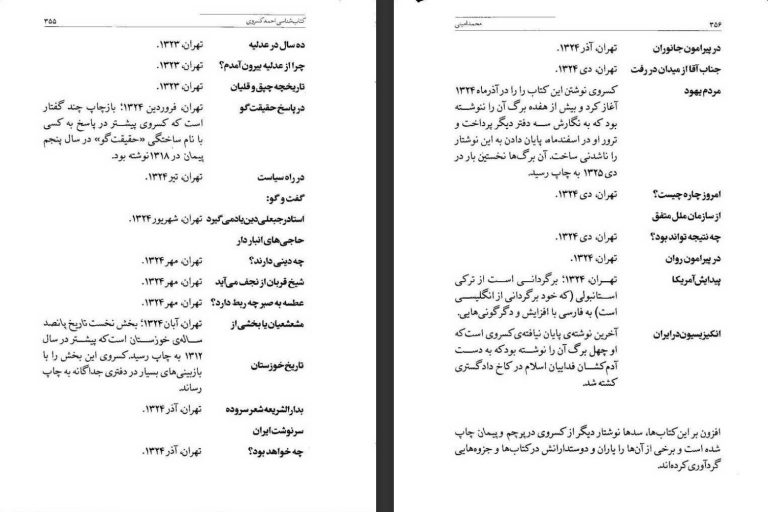 کتاب‌شناسی احمد کسروی ۳۵۵
ده سال در عدلیه تهران، ۱۳۲۳.
چرا از عدلیه بیرون آمدم؟ تهران، ۱۳۲۳.
تاریخچه چپق و قلیان تهران، ۱۳۲۳.
در پاسخ حقیقت‌گو تهران، فروردین ۱۳۲۴؛ بازچاپ چند گفتار
است که کسروی پیشتر در پاسخ به کسی
با نام ساختگی «حقیقت‌گو» در سال پنجم
پیمان در ۱۳۱۸ نوشته بود.
در راه سیاست تهران، تیر ۱۳۲۴.
گفت و گو:
استاد رجبعلی دین یاد می گیرد تهران، شهریور ۱۳۲۴.
حاجی‌های انبار دار
چه دینی دارند؟ تهران، مهر ۱۳۲۴.
شیخ قربان از نجف می‌آید تهران، مهر ۱۳۲۴.
عطسه به صبر چه ربط دارد؟ تهران، مهر ۱۳۲۴.
مشعشعیان یا بخشی از تهران، آبان ۱۳۲۴؛ بخش نخست تاریخ پانصد
ساله‌ی خوزستان است که پیشتر در سال
۱۳۱۲ به چاپ رسید. کسروی این بخش را با
تاریخ خوزستان
بازبینی‌های بسیار در دفتری جداگانه به چاپ
رساند.
بدار الشریعه شعر سروده تهران، آذر ۱۳۲۴.
سرنوشت ایران
چه خواهد بود؟ تهران، آذر ۱۳۲۴.
۳۵۶ محمد امینی
در پیرامون جانوران تهران، آذر ۱۳۲۴.
جناب آقا از میدان در رفت تهران، دی ۱۳۲۴.
مردم یهود کسروی نوشتن این کتاب را را در آذرماه ۱۳۲۴
آغاز کرد و بیش از هفده برگ آن را ننوشته
بود که به نگارش سه دفتر دیگر پرداخت و
ترور او در اسفندماه، پایان دادن به این نوشتار
را ناشدنی ساخت. آن برگ‌ها نخستین بار در
دی ۱۳۲۵ به چاپ رسید.
امروز چاره چیست؟ تهران، دی ۱۳۲۴.
از سازمان ملل متفق
چه نتیجه تواند بود؟ تهران، دی ۱۳۲۴.
در پیرامون روان تهران، ۱۳۲۴.
پیدایش آمریکا تهران، ۱۳۲۴؛ برگردانی است از ترکی
استانبولی (که خود برگردانی از انگلیسی
است) به فارسی با افزایش و دگرگونی‌هایی.
انکیزیسیون در ایران آخرین نوشته‌ی پایان نیافته‌ی کسروی است که
او چهل برگ آن را نوشته بود که به دست
آدم‌کشان فداییان اسلام در کاخ دادگستری
کشته شد.
افزون بر این کتاب‌ها، سدها نوشتار دیگر از کسروی در پرچم و پیمان چاپ
شده است و برخی از آن‌ها را یاران و دوستدارانش در کتاب‌ها و جزوه‌هایی
گردآوری کرده‌اند.